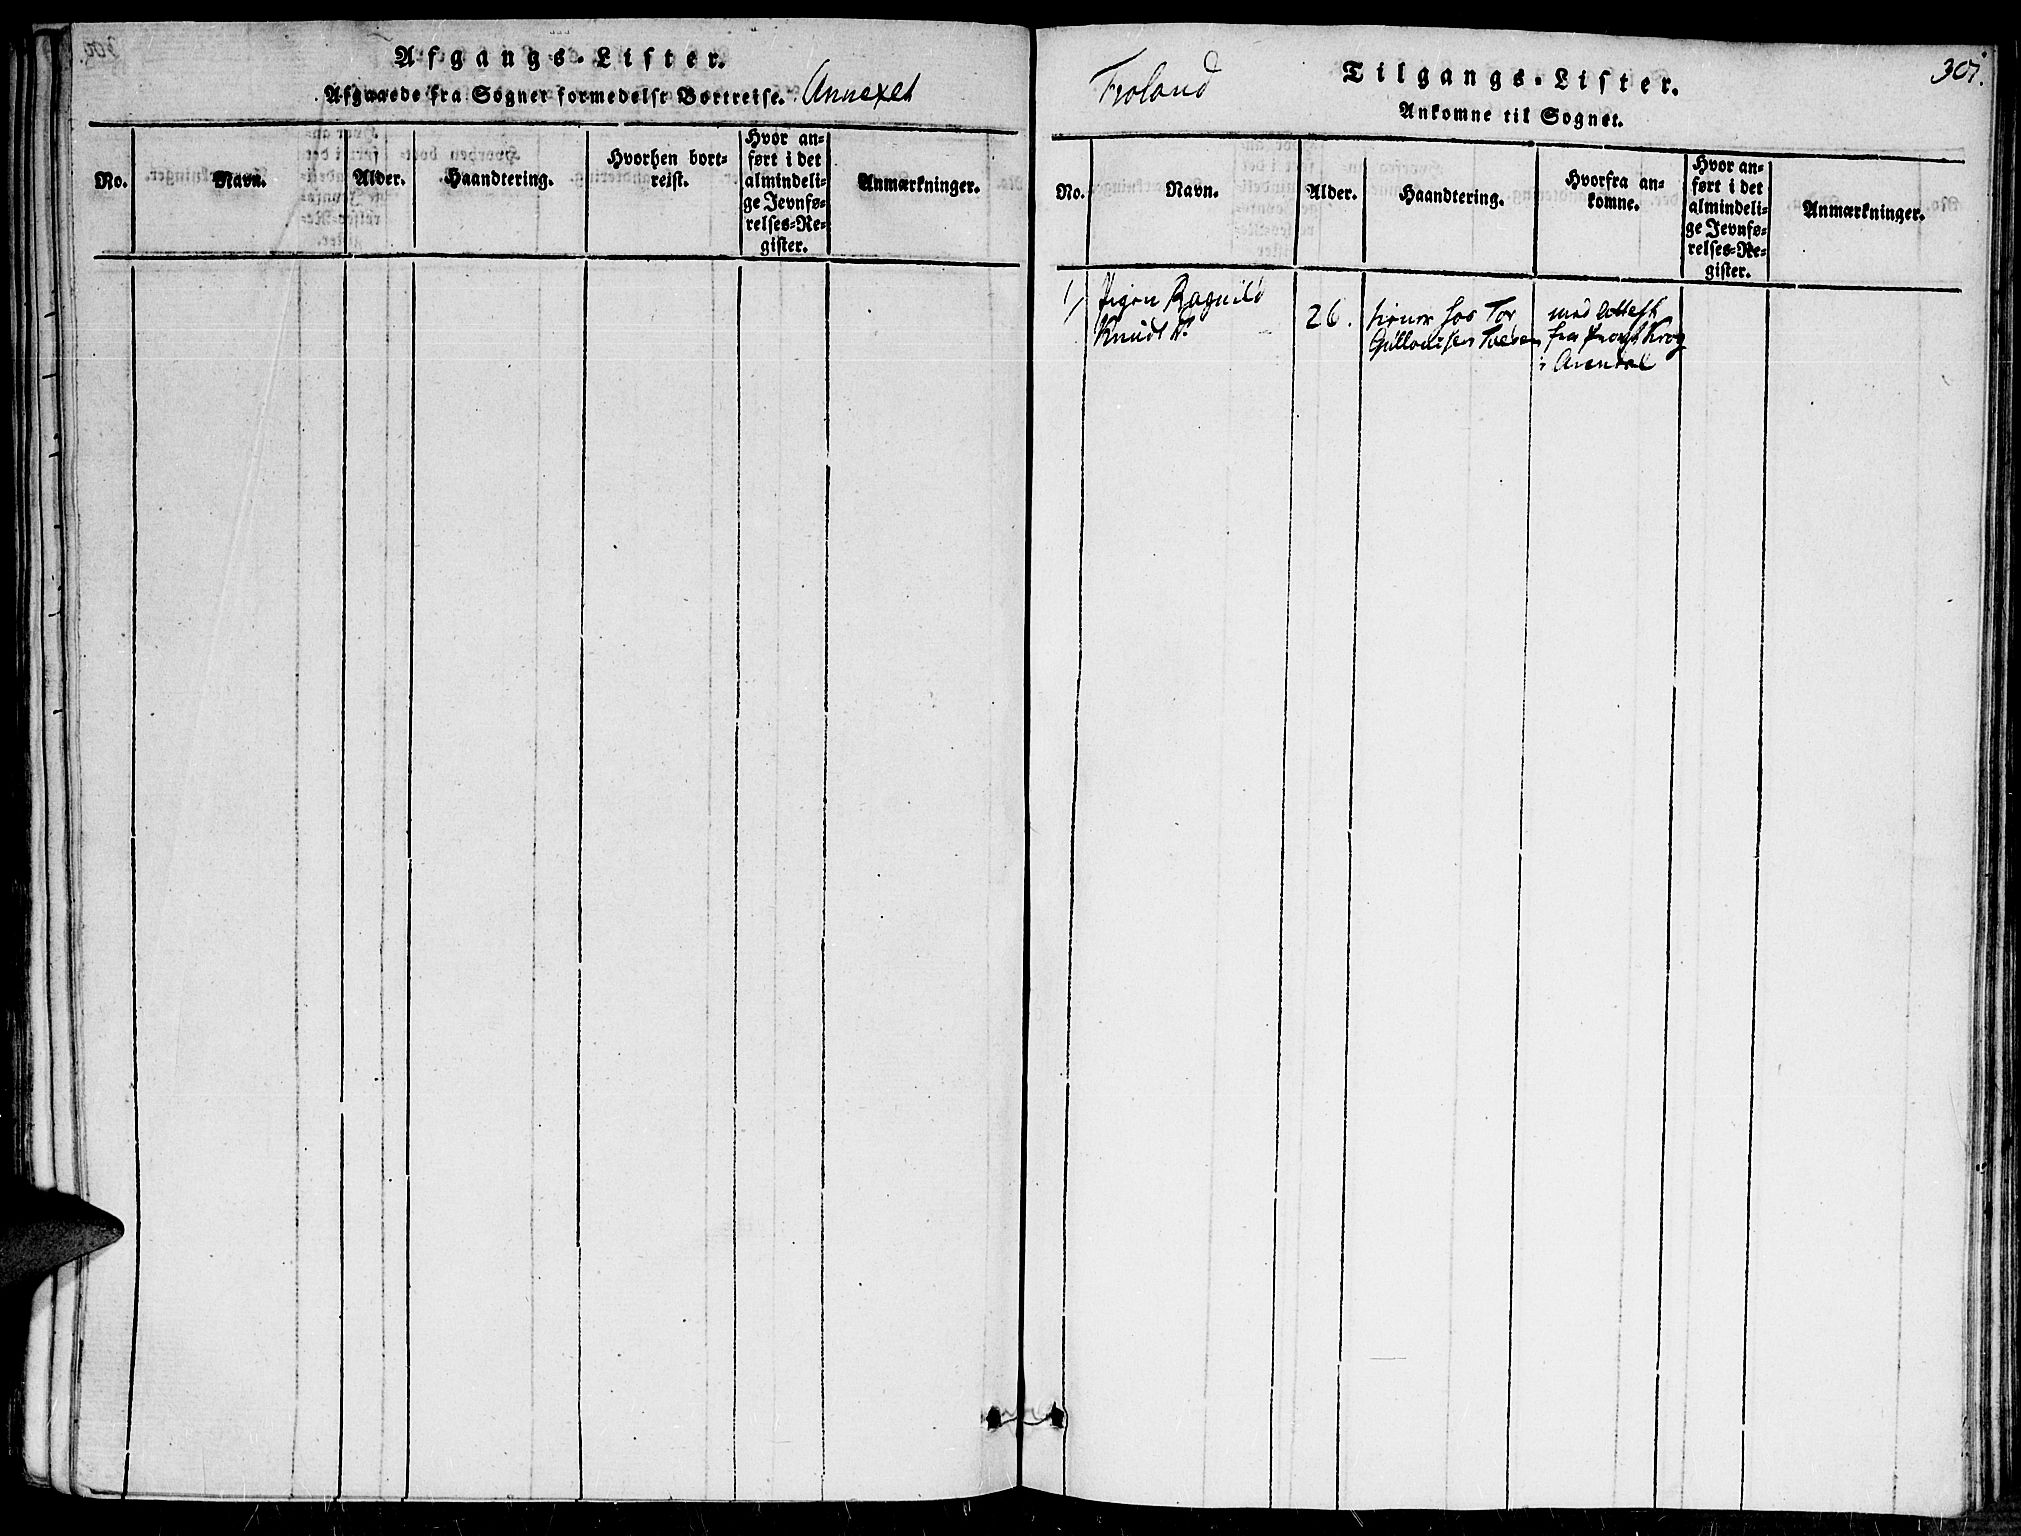 Afgangs-Lister.
Afgaaede fra Sognet formedelst Bortreise. Annexet
No.
Navn.
Alder.
Haandtering.
Hvorhen bort-
reist.
Hvor an-
ført i det
almindeli-
ge Jevnfø-
relses-Re-
gister.
Anmærkninger.
Froland
Tilgangs-Lister.
Ankomne til Sognet.
307.
No.
Navn.
Alder.
Haandtering.
Hvorfra an-
komne.
Hvor an-
ført i det
almindeli-
ge Jevnfø-
relses-Re-
gister.
Anmærkninger.
1,
Pigen Ragnild
Knudsd.
26.
tiener hos Tor
med Attest
fra Provst Krog
i Arendal